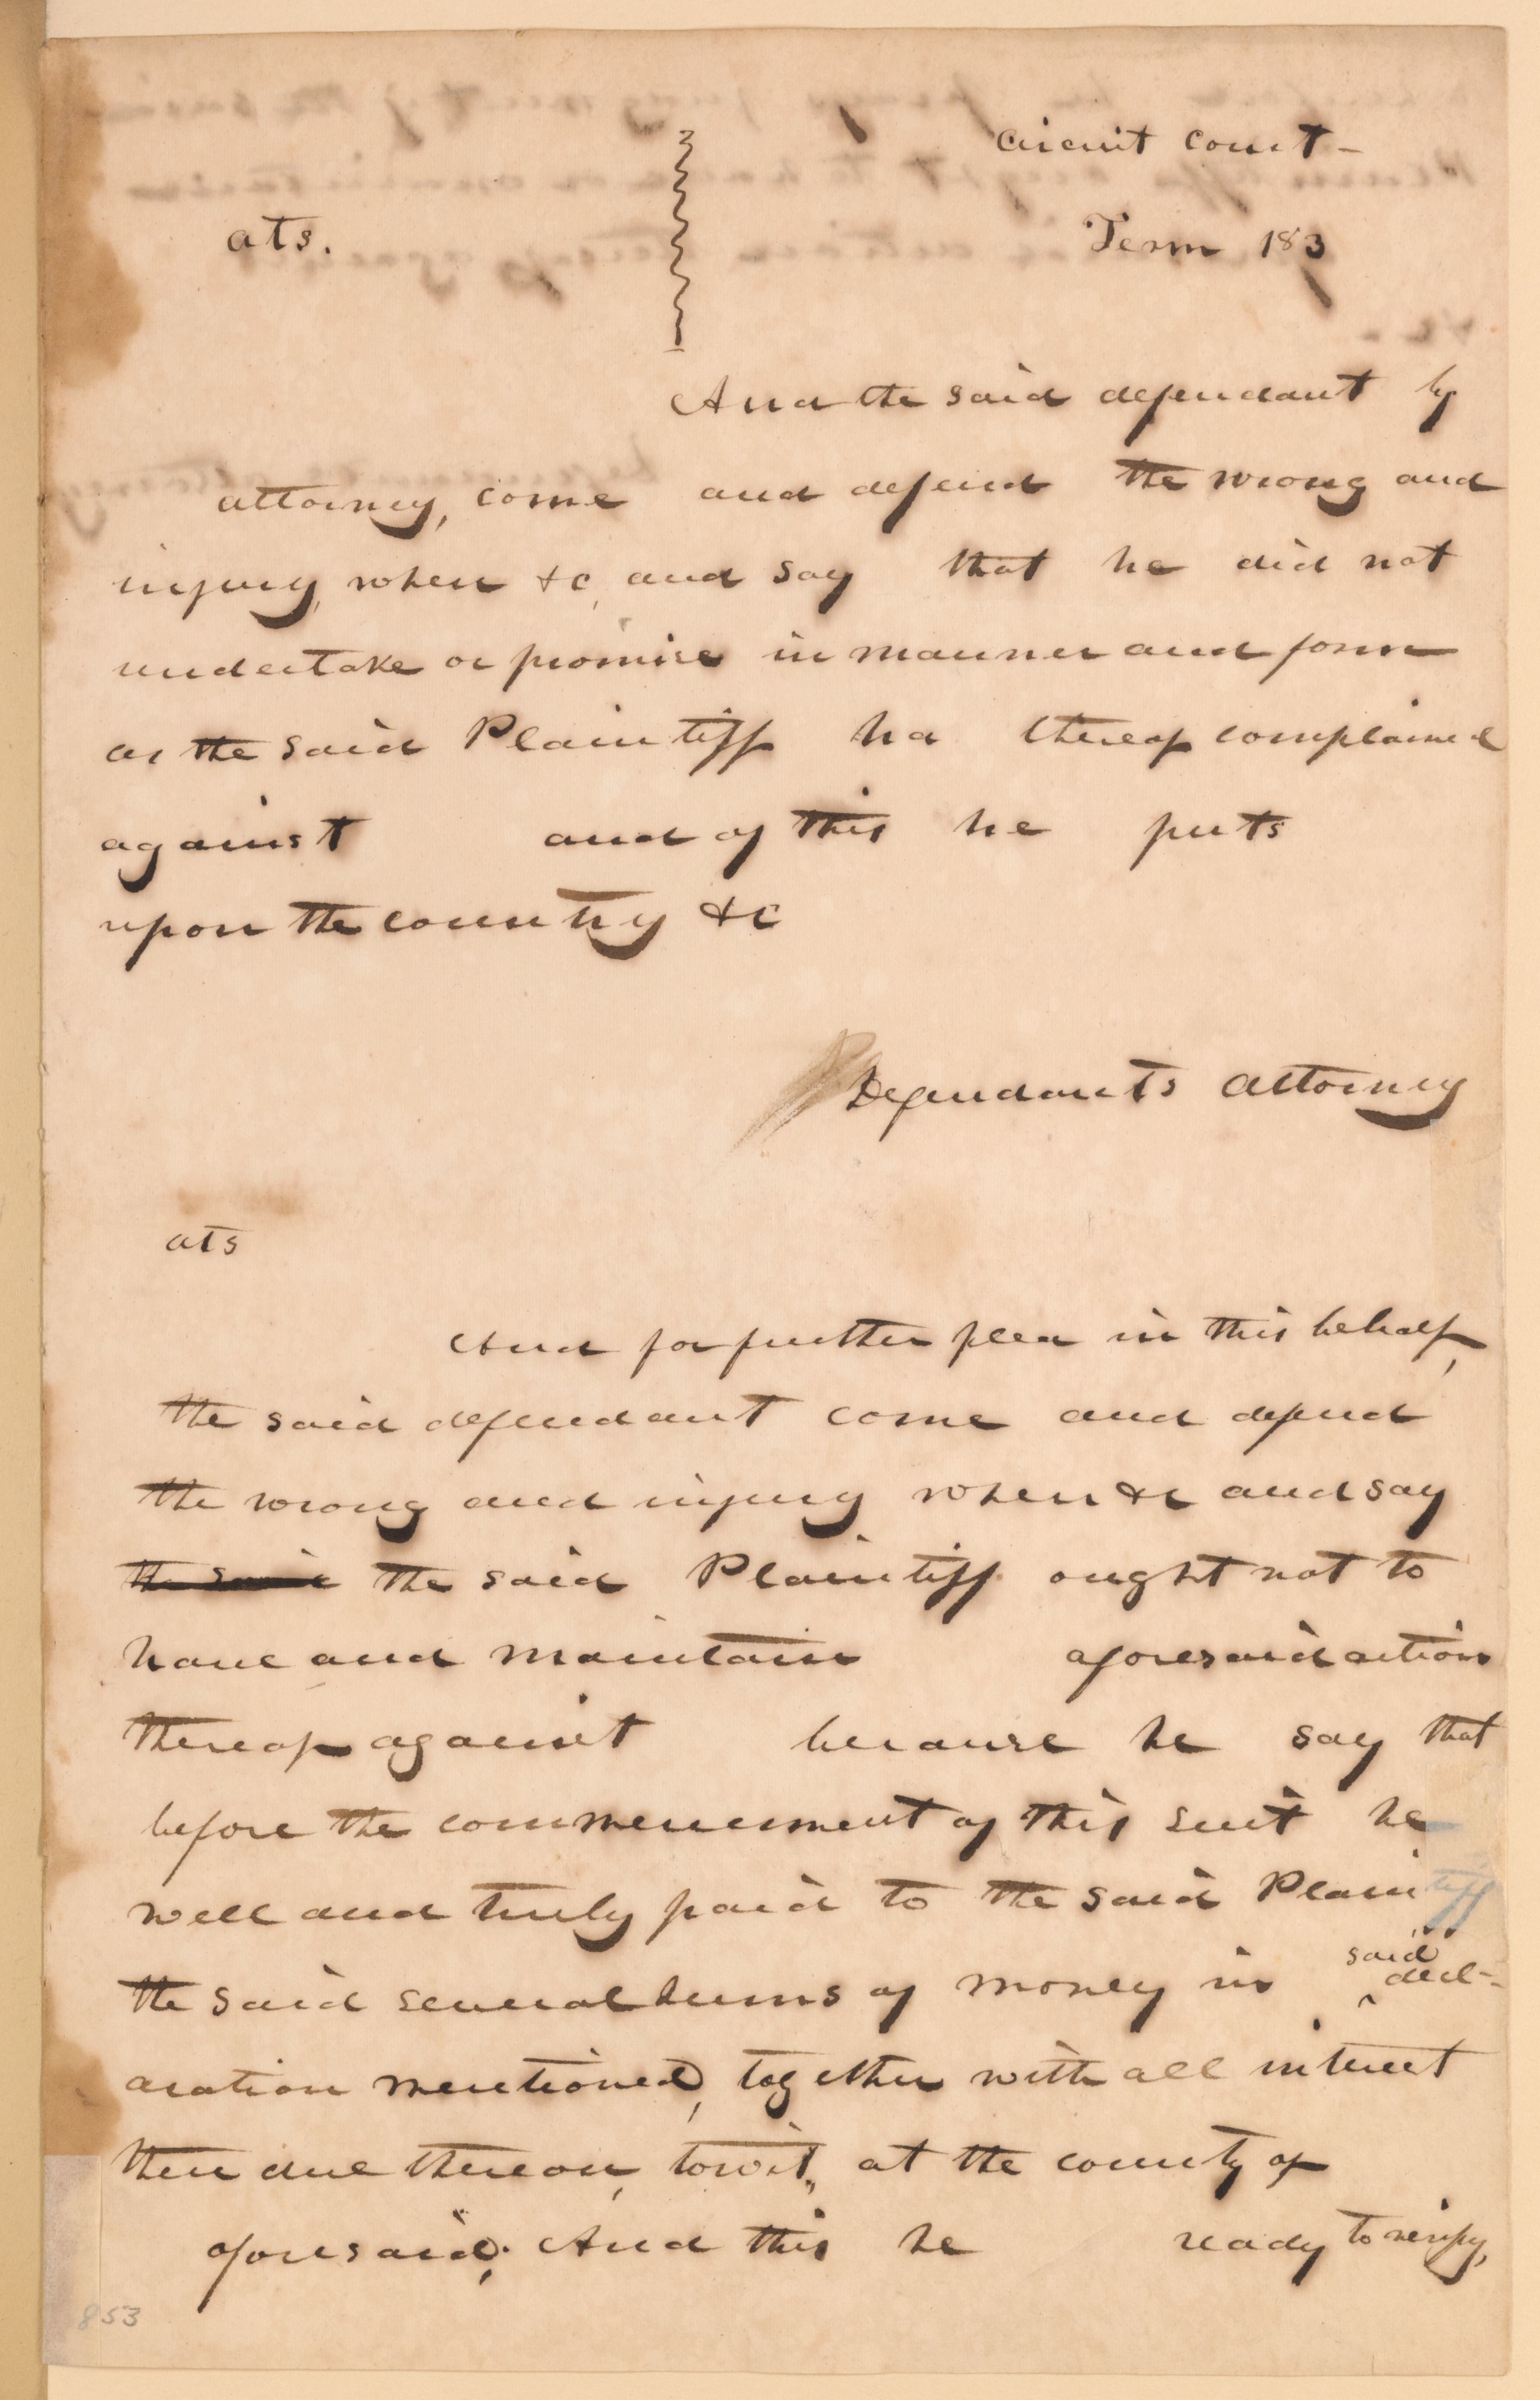 Circuit Court-
ats.
Term 183
And the said defendant by
attorney, come and defend the wrong and
injury, when &c, and say that he did not
undertake or promise in manner and form
as the said Plaintiff ha thereof complained
against and of this he puts
upon the country &c
Defendants attorney
ats
And for further plea in this behalf,
the said defendant come and defend
the wrong and injury when &c and say
the said the said Plaintiff ought not to
have and maintain aforesaid action
thereof against because he say that
before the commencement of this suit he
well and truly paid to the said Plaintiff
the said several sums of money in said decl-
aration mentioned, together with all interest
then due thereon, towit, at the county of
aforesaid; And this he ready to verify,
853